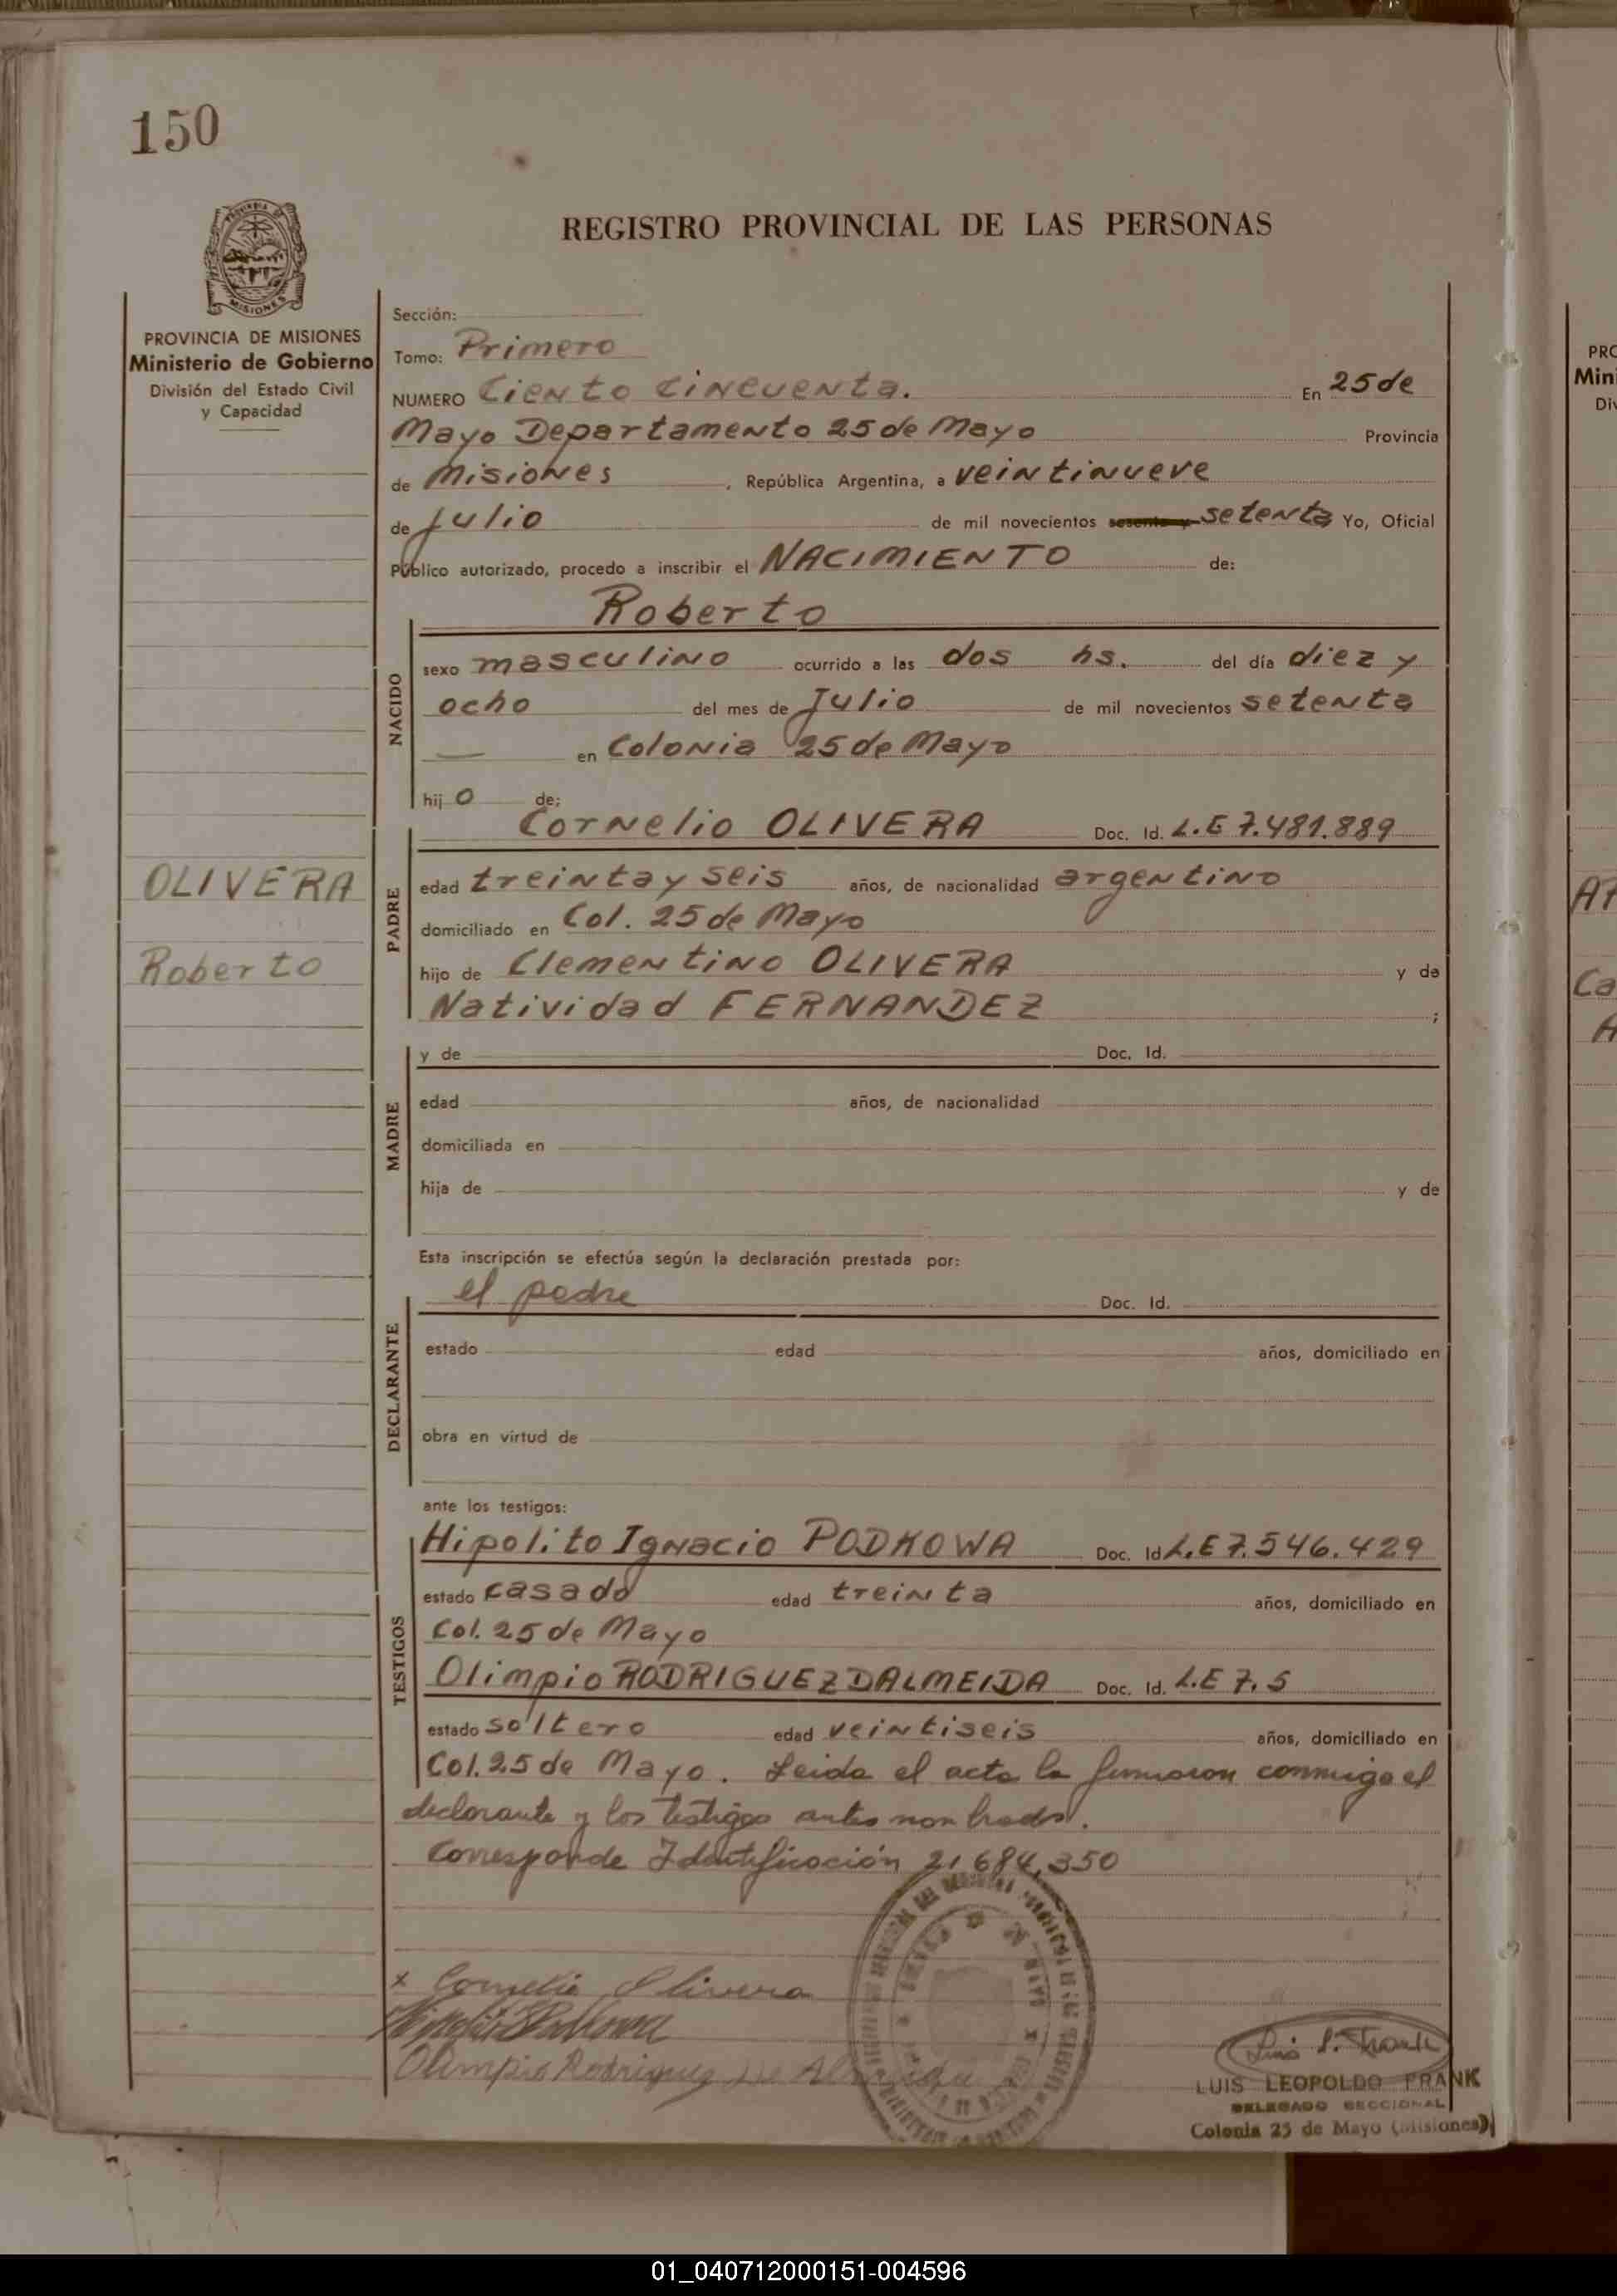 150
REGISTRO PROVINCIAL DE LAS PERSONAS
MISIONES
PROVINCIA DE MISIONES
Ministerio de Gobierno
División del Estado Civil
y Capacidad
Sección:
Tomo: Primero
NUMERO Ciento Cincuenta. En 25 de
Mayo Departamento 25 de Mayo Provincia
de Misiones, República Argentina, a veintinueve
de Julio de mil novecientos sesenta y setenta Yo, Oficial
Público autorizado, procedo a inscribir el NACIMIENTO de:
Roberto
NACIDO
sexo masculino ocurrido a las dos hs. del día diez y
ocho del mes de Julio de mil novecientos setenta
— en Colonia 25 de Mayo
hijo de;
Cornelio OLIVERA Doc. Id. L.E 7.481.889
OLIVERA
Roberto
PADRE
edad treinta y seis años, de nacionalidad argentino
domiciliado en Col. 25 de Mayo
hijo de Clementino OLIVERA y de
Natividad FERNANDEZ ;
MADRE
y de Doc. Id.
edad años, de nacionalidad
domiciliada en
hija de y de
Esta inscripción se efectúa según la declaración prestada por:
el padre Doc. Id.
DECLARANTE
estado edad años, domiciliado en
obra en virtud de
ante los testigos:
TESTIGOS
Hipolito Ignacio PODKOWA Doc. Id L.E 7.546.429
estado casado edad treinta años, domiciliado en
Col. 25 de Mayo
Olimpio RODRIGUEZ DALMEIDA Doc. Id. L.E 7.5
estado soltero edad veintiseis años, domiciliado en
Col. 25 de Mayo. Leida el acta la firmaron conmigo el
declarante y los testigos antes nombrados.
Corresponde Identificación 21.684.350
x Cornelio Olivera
Olimpio Rodriguez De Almeida
Luis L. Frank
LUIS LEOPOLDO FRANK
DELEGADO SECCIONAL
Colonia 25 de Mayo (Misiones)
01_040712000151-004596